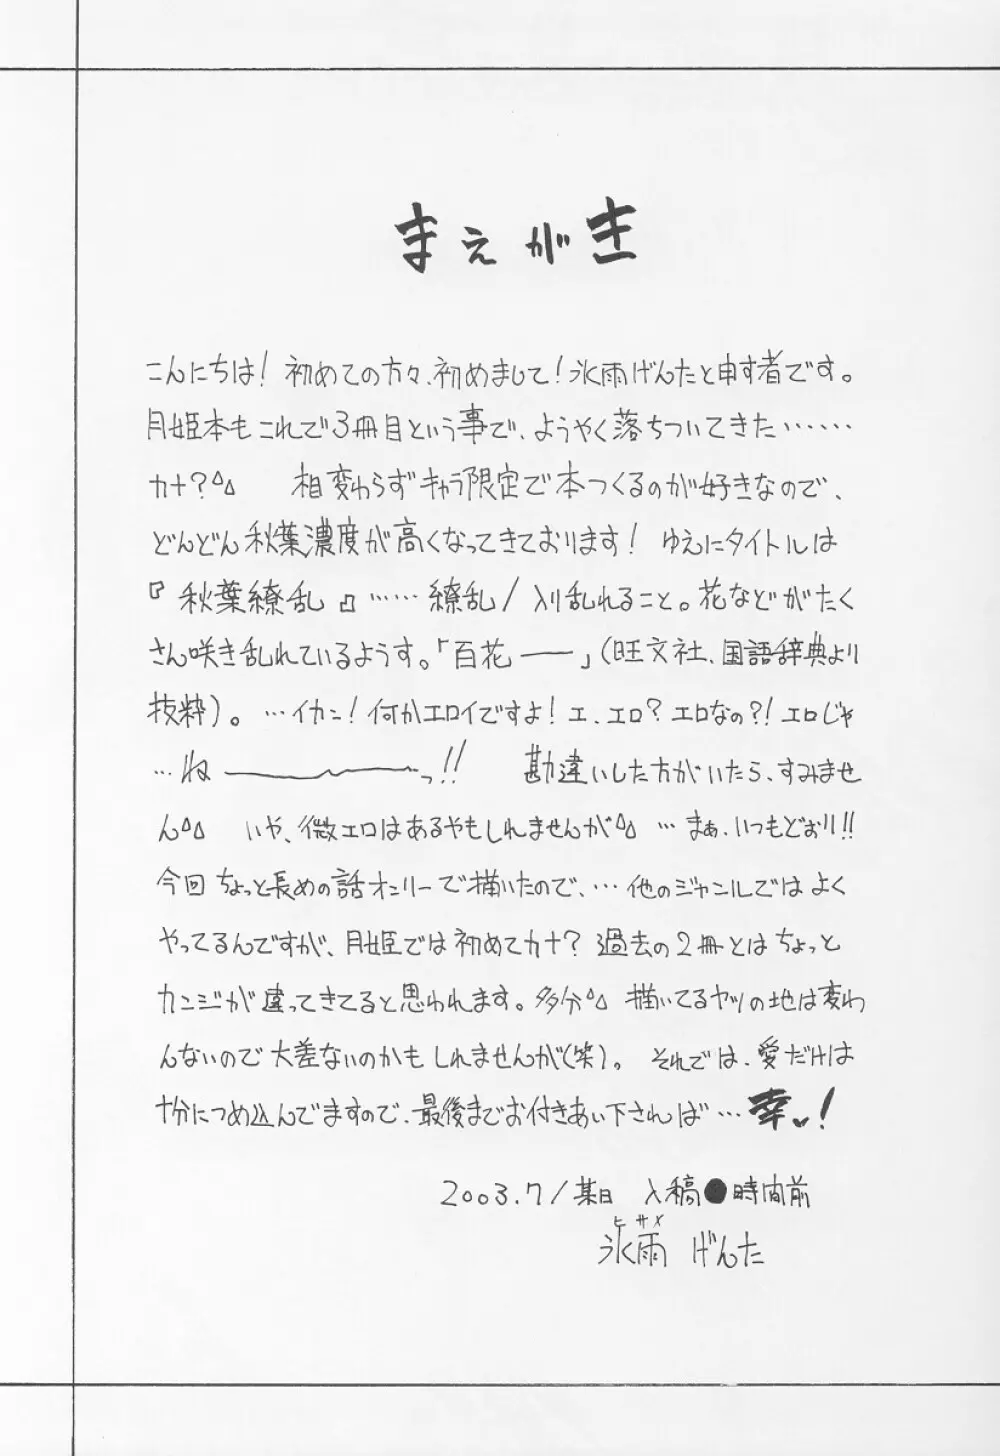 まえがき
こんにちは！初めての方々、初めまして！氷雨げんたと申す者です。
月姫本もこれで3冊目という事で、ようやく落ちついてきた……
カナ？^^ 相変わらずキャラ限定で本つくるのが好きなので、
どんどん秋葉濃度が高くなってきております！ゆえにタイトルは
『秋葉繚乱』……繚乱/入り乱れること。花などがたく
さん咲き乱れているようす。「百花――」(旺文社、国語辞典より
抜粋)。…イカン！何かエロイですよ！エ、エロ？エロなの？！エロじゃ
…ね――――っ!! 勘違いした方がいたら、すみませ
ん^^ いや、微エロはあるやもしれませんが^^ …まぁ、いつもどおり!!
今回ちょっと長めの話オンリーで描いたので、…他のジャンルではよく
やってるんですが、月姫では初めてカナ？過去の2冊とはちょっと
カンジが違ってきてると思われます。多分^^ 描いてるヤツの地は変わ
んないので大差ないのかもしれませんが(笑)。それでは、愛だけは
十分につめ込んでますので、最後までお付きあい下されば…幸っ！
2003.7/某日 入稿●時間前
ヒサメ
氷雨 げんた